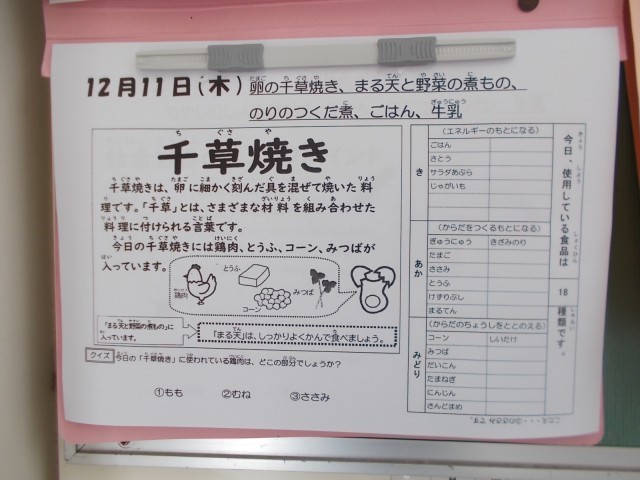 12月11日(木) 卵の千草焼き、まる天と野菜の煮もの、
のりのつくだ煮、ごはん、牛乳
千草焼き
千草焼きは、卵に細かく刻んだ具を混ぜて焼いた料
理です。「千草」とは、さまざまな材料を組み合わせた
料理に付けられる言葉です。
今日の千草焼きには鶏肉、とうふ、コーン、みつばが
入っています。
鶏肉
とうふ
コーン
みつば
「まる天と野菜の煮もの」に
入っています。
「まる天」は、しっかりよくかんで食べましょう。
クイズ 今日の「千草焼き」に使われている鶏肉は、どこの部分でしょうか?
①もも ②むね ③ささみ
き
(エネルギーのもとになる)
ごはん
さとう
サラダあぶら
じゃがいも
あか
(からだをつくるもとになる)
ぎゅうにゅう きざみのり
たまご
ささみ
とうふ
けずりぶし
まるてん
みどり
(からだのちょうしをととのえる)
コーン しいたけ
みつば
だいこん
たまねぎ
にんじん
さんどまめ
今日、使用している食品は
18
種類です。
こたえ・・・③のささみです。